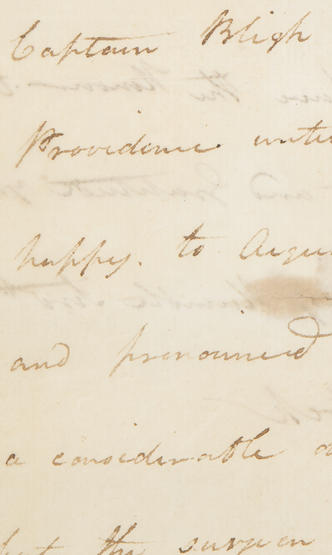 Captain Bligh
Providence
happy. to
and pronounced
a considerable
but the surgeon